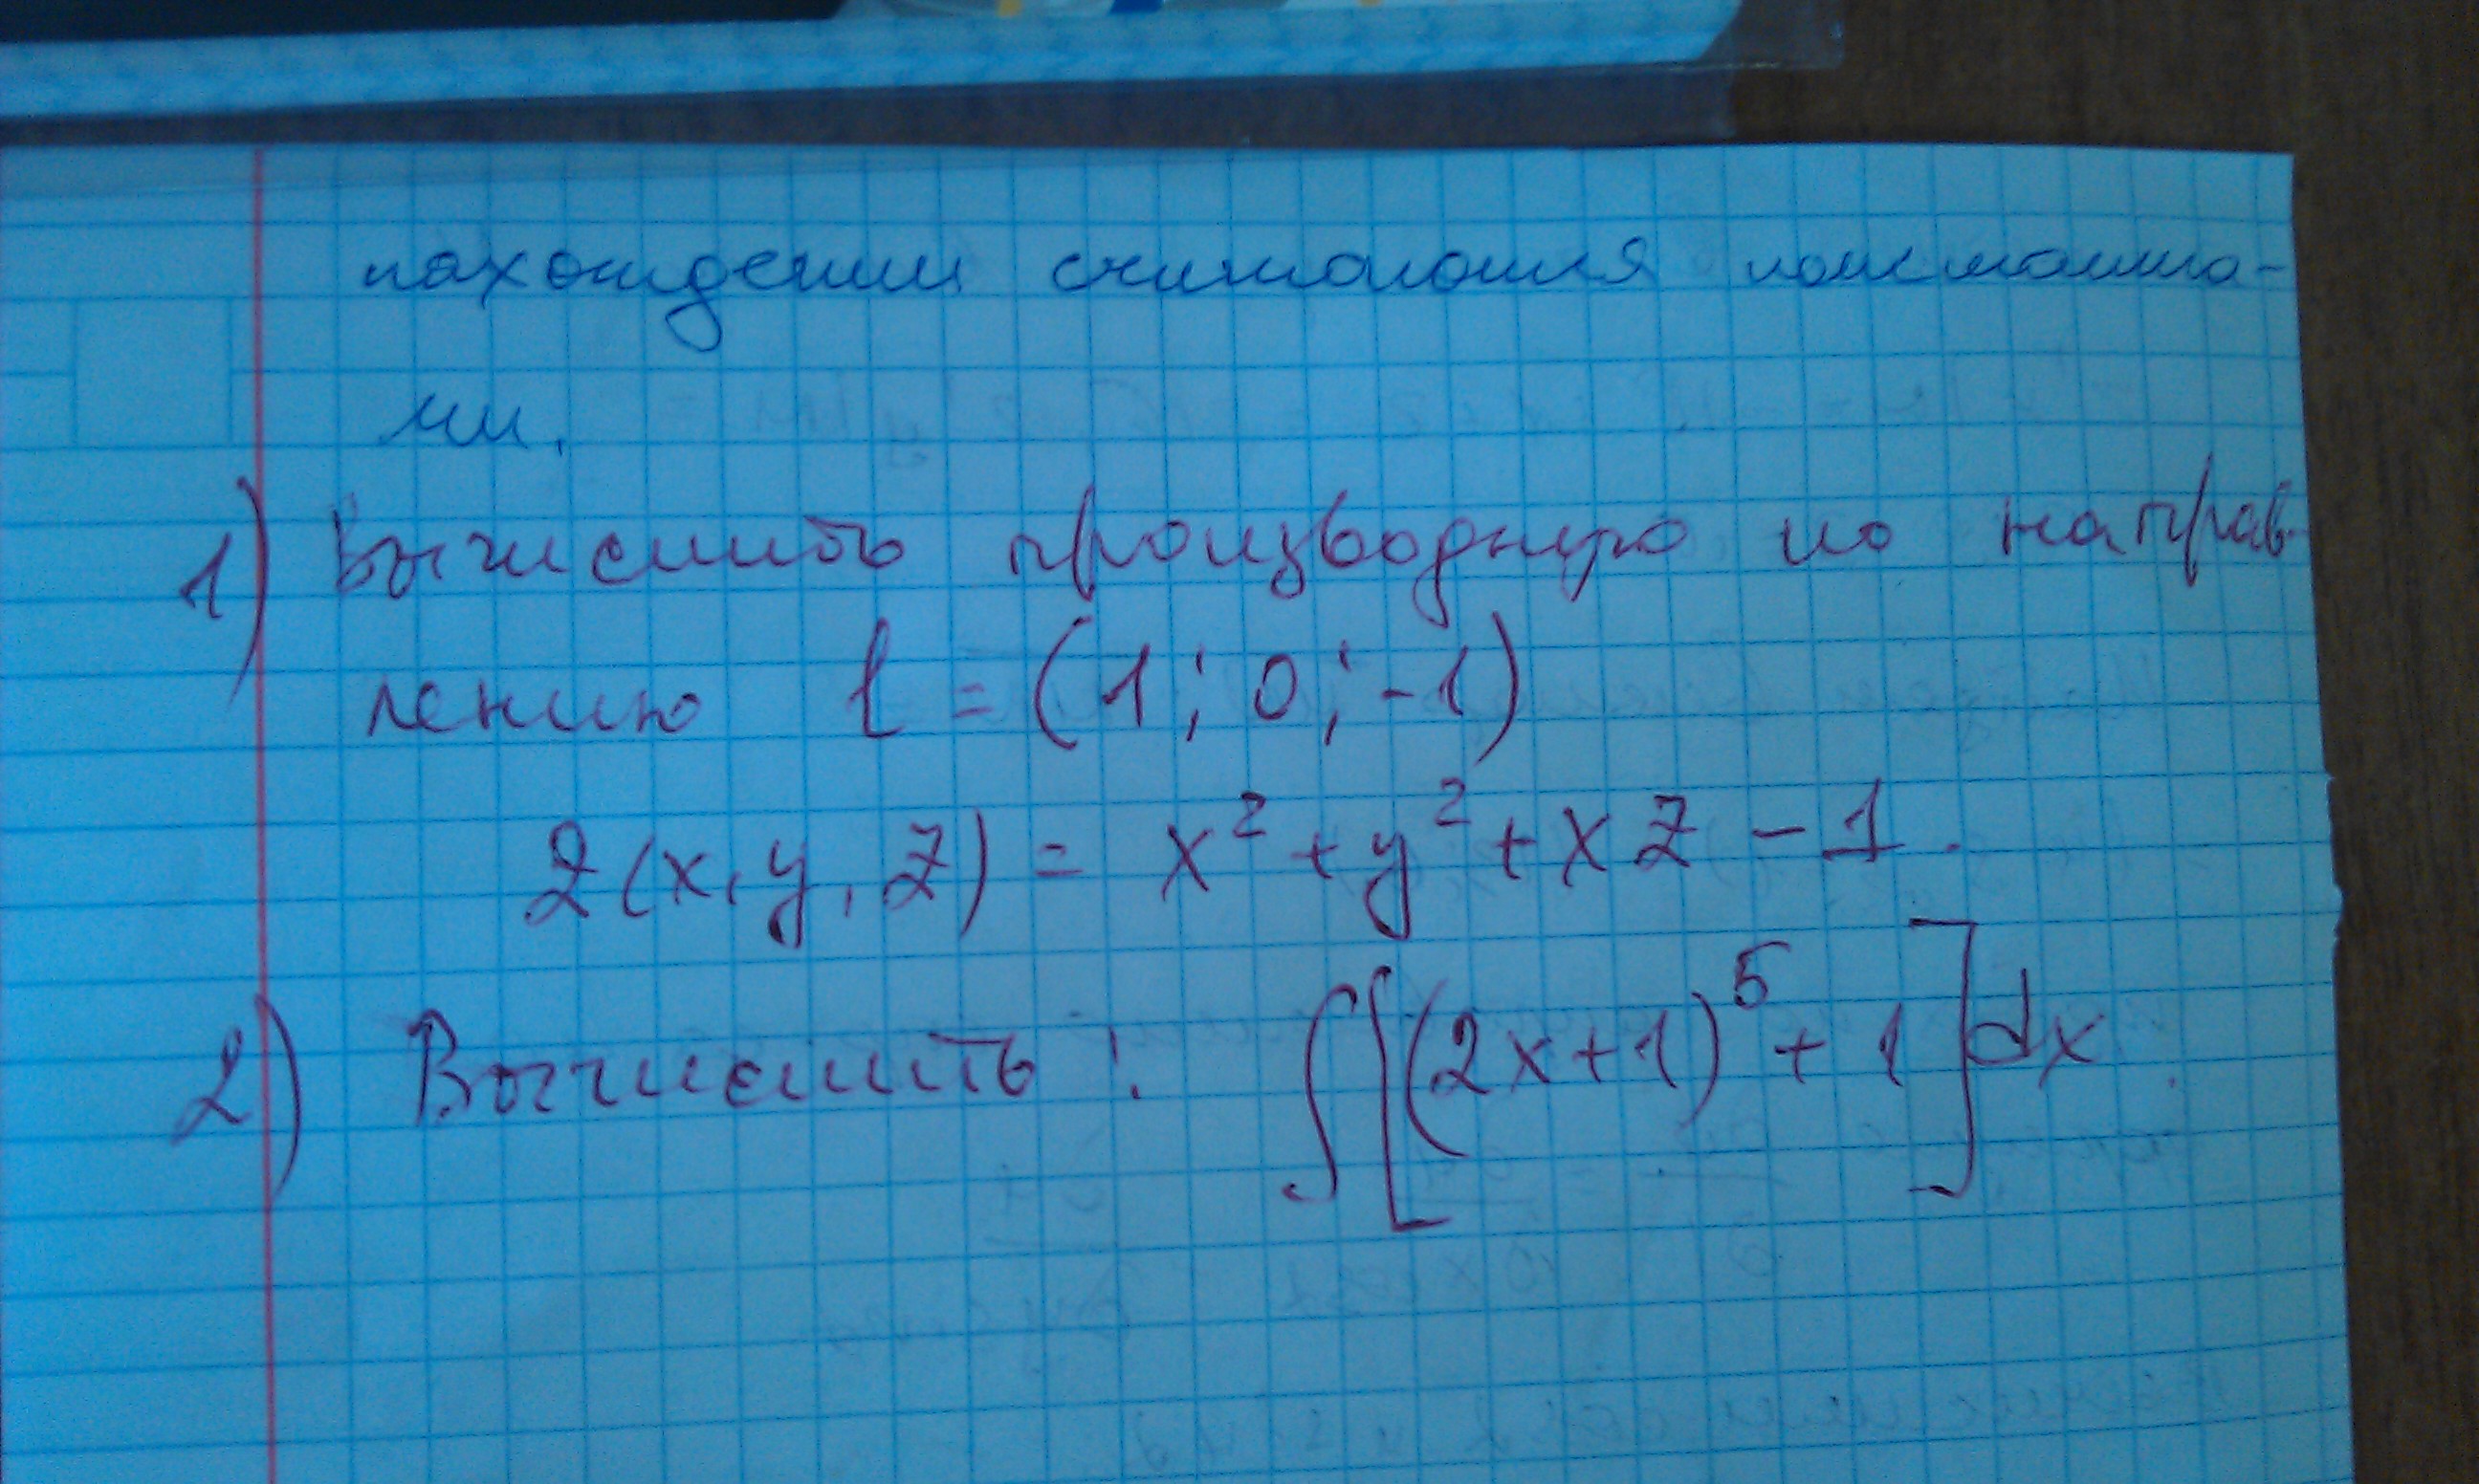 нахождении считаются константа-
ми.
1) Вычислить производную по направ-
лению l = (1; 0; -1)
2(x, y, z) = x² + y² + xz - 1.
2) Вычислить: ∫[(2x+1)⁵ + 1]dx.